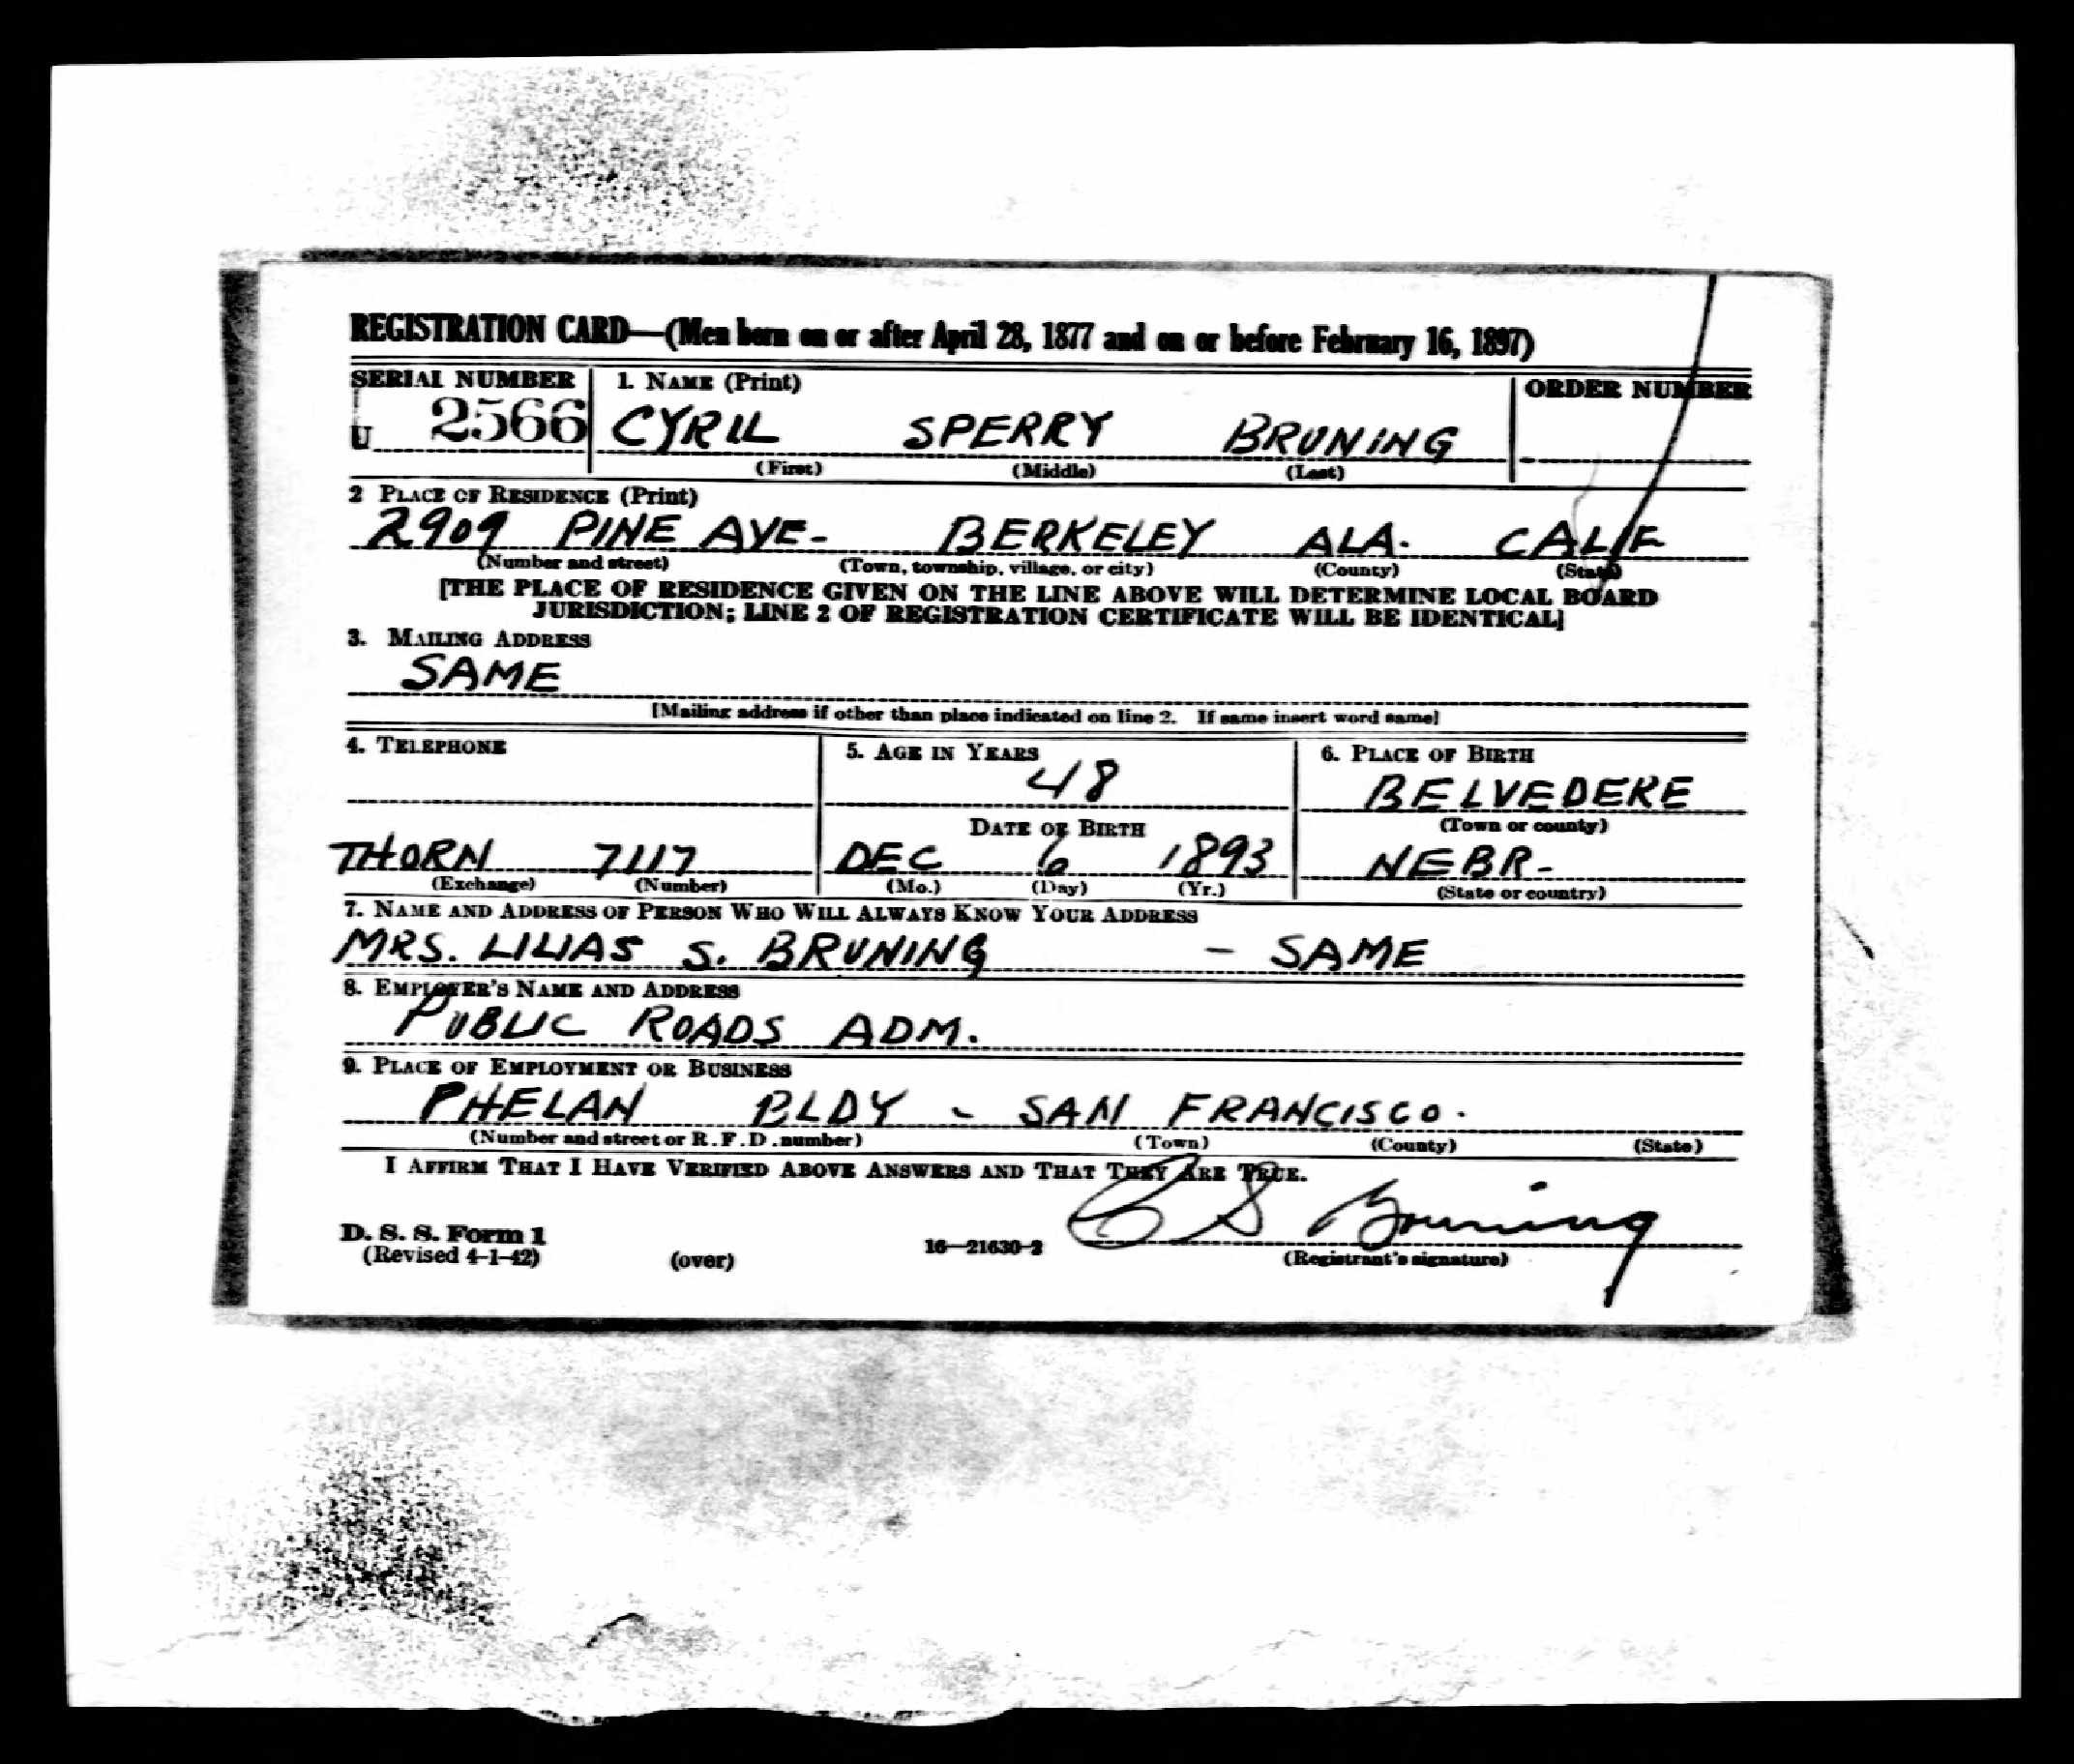 REGISTRATION CARD—(Men born on or after April 28, 1877 and on or before February 16, 1897)
SERIAL NUMBER 1. NAME (Print) ORDER NUMBER
U 2566 CYRIL SPERRY BRUNING
(First) (Middle) (Last)
2 PLACE OF RESIDENCE (Print)
2909 PINE AVE- BERKELEY ALA. CALIF
(Number and street) (Town, township, village, or city) (County) (State)
[THE PLACE OF RESIDENCE GIVEN ON THE LINE ABOVE WILL DETERMINE LOCAL BOARD
JURISDICTION; LINE 2 OF REGISTRATION CERTIFICATE WILL BE IDENTICAL]
3. MAILING ADDRESS
SAME
[Mailing address if other than place indicated on line 2. If same insert word same]
4. TELEPHONE 5. AGE IN YEARS 6. PLACE OF BIRTH
48 BELVEDERE
DATE OF BIRTH (Town or county)
THORN 7117 DEC 6 1893 NEBR-
(Exchange) (Number) (Mo.) (Day) (Yr.) (State or country)
7. NAME AND ADDRESS OF PERSON WHO WILL ALWAYS KNOW YOUR ADDRESS
MRS. LILIAS S. BRUNING - SAME
8. EMPLOYER'S NAME AND ADDRESS
PUBLIC ROADS ADM.
9. PLACE OF EMPLOYMENT OR BUSINESS
PHELAN BLDY - SAN FRANCISCO.
(Number and street or R. F. D. number) (Town) (County) (State)
I AFFIRM THAT I HAVE VERIFIED ABOVE ANSWERS AND THAT THEY ARE TRUE.
C S Bruning
D. S. S. Form 1
(Revised 4-1-42) (over) 16—21630-2 (Registrant's signature)